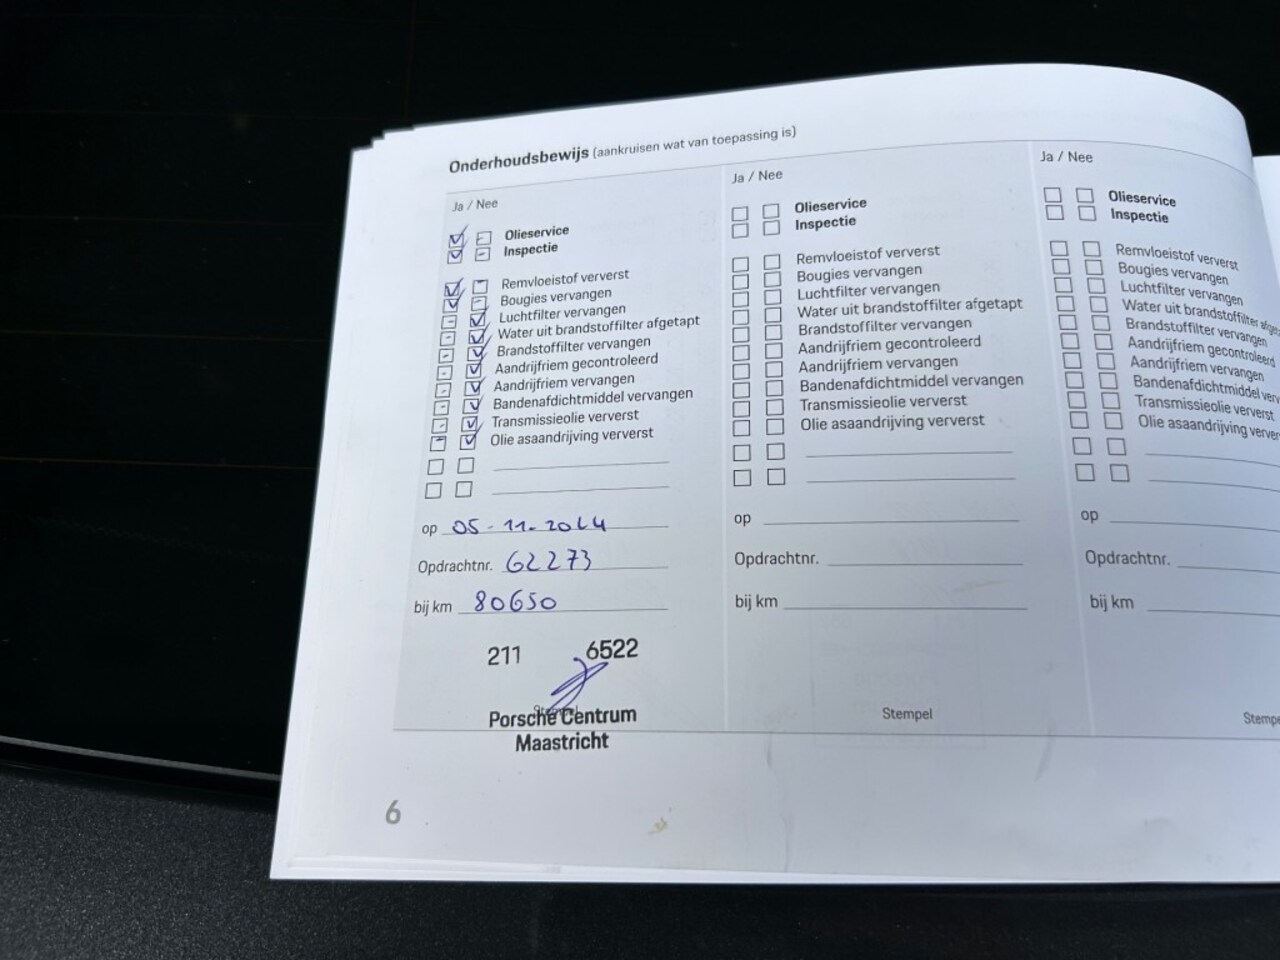 Onderhoudsbewijs (aankruisen wat van toepassing is)
Ja / Nee
Olieservice
Inspectie
Remvloeistof ververst
Bougies vervangen
Luchtfilter vervangen
Water uit brandstoffilter afgetapt
Brandstoffilter vervangen
Aandrijfriem gecontroleerd
Aandrijfriem vervangen
Bandenafdichtmiddel vervangen
Transmissieolie ververst
Olie asaandrijving ververst
op 05-11-2024
Opdrachtnr. 62273
bij km 80650
211 6522
Stempel
Porsche Centrum
Maastricht
6
Ja / Nee
Olieservice
Inspectie
Remvloeistof ververst
Bougies vervangen
Luchtfilter vervangen
Water uit brandstoffilter afgetapt
Brandstoffilter vervangen
Aandrijfriem gecontroleerd
Aandrijfriem vervangen
Bandenafdichtmiddel vervangen
Transmissieolie ververst
Olie asaandrijving ververst
op
Opdrachtnr.
bij km
Stempel
Ja / Nee
Olieservice
Inspectie
Remvloeistof ververst
Bougies vervangen
Luchtfilter vervangen
Water uit brandstoffilter afge
Brandstoffilter vervangen
Aandrijfriem gecontroleerd
Aandrijfriem vervangen
Bandenafdichtmiddel verv
Transmissieolie ververst
Olie asaandrijving ververs
op
Opdrachtnr.
bij km
Stempe